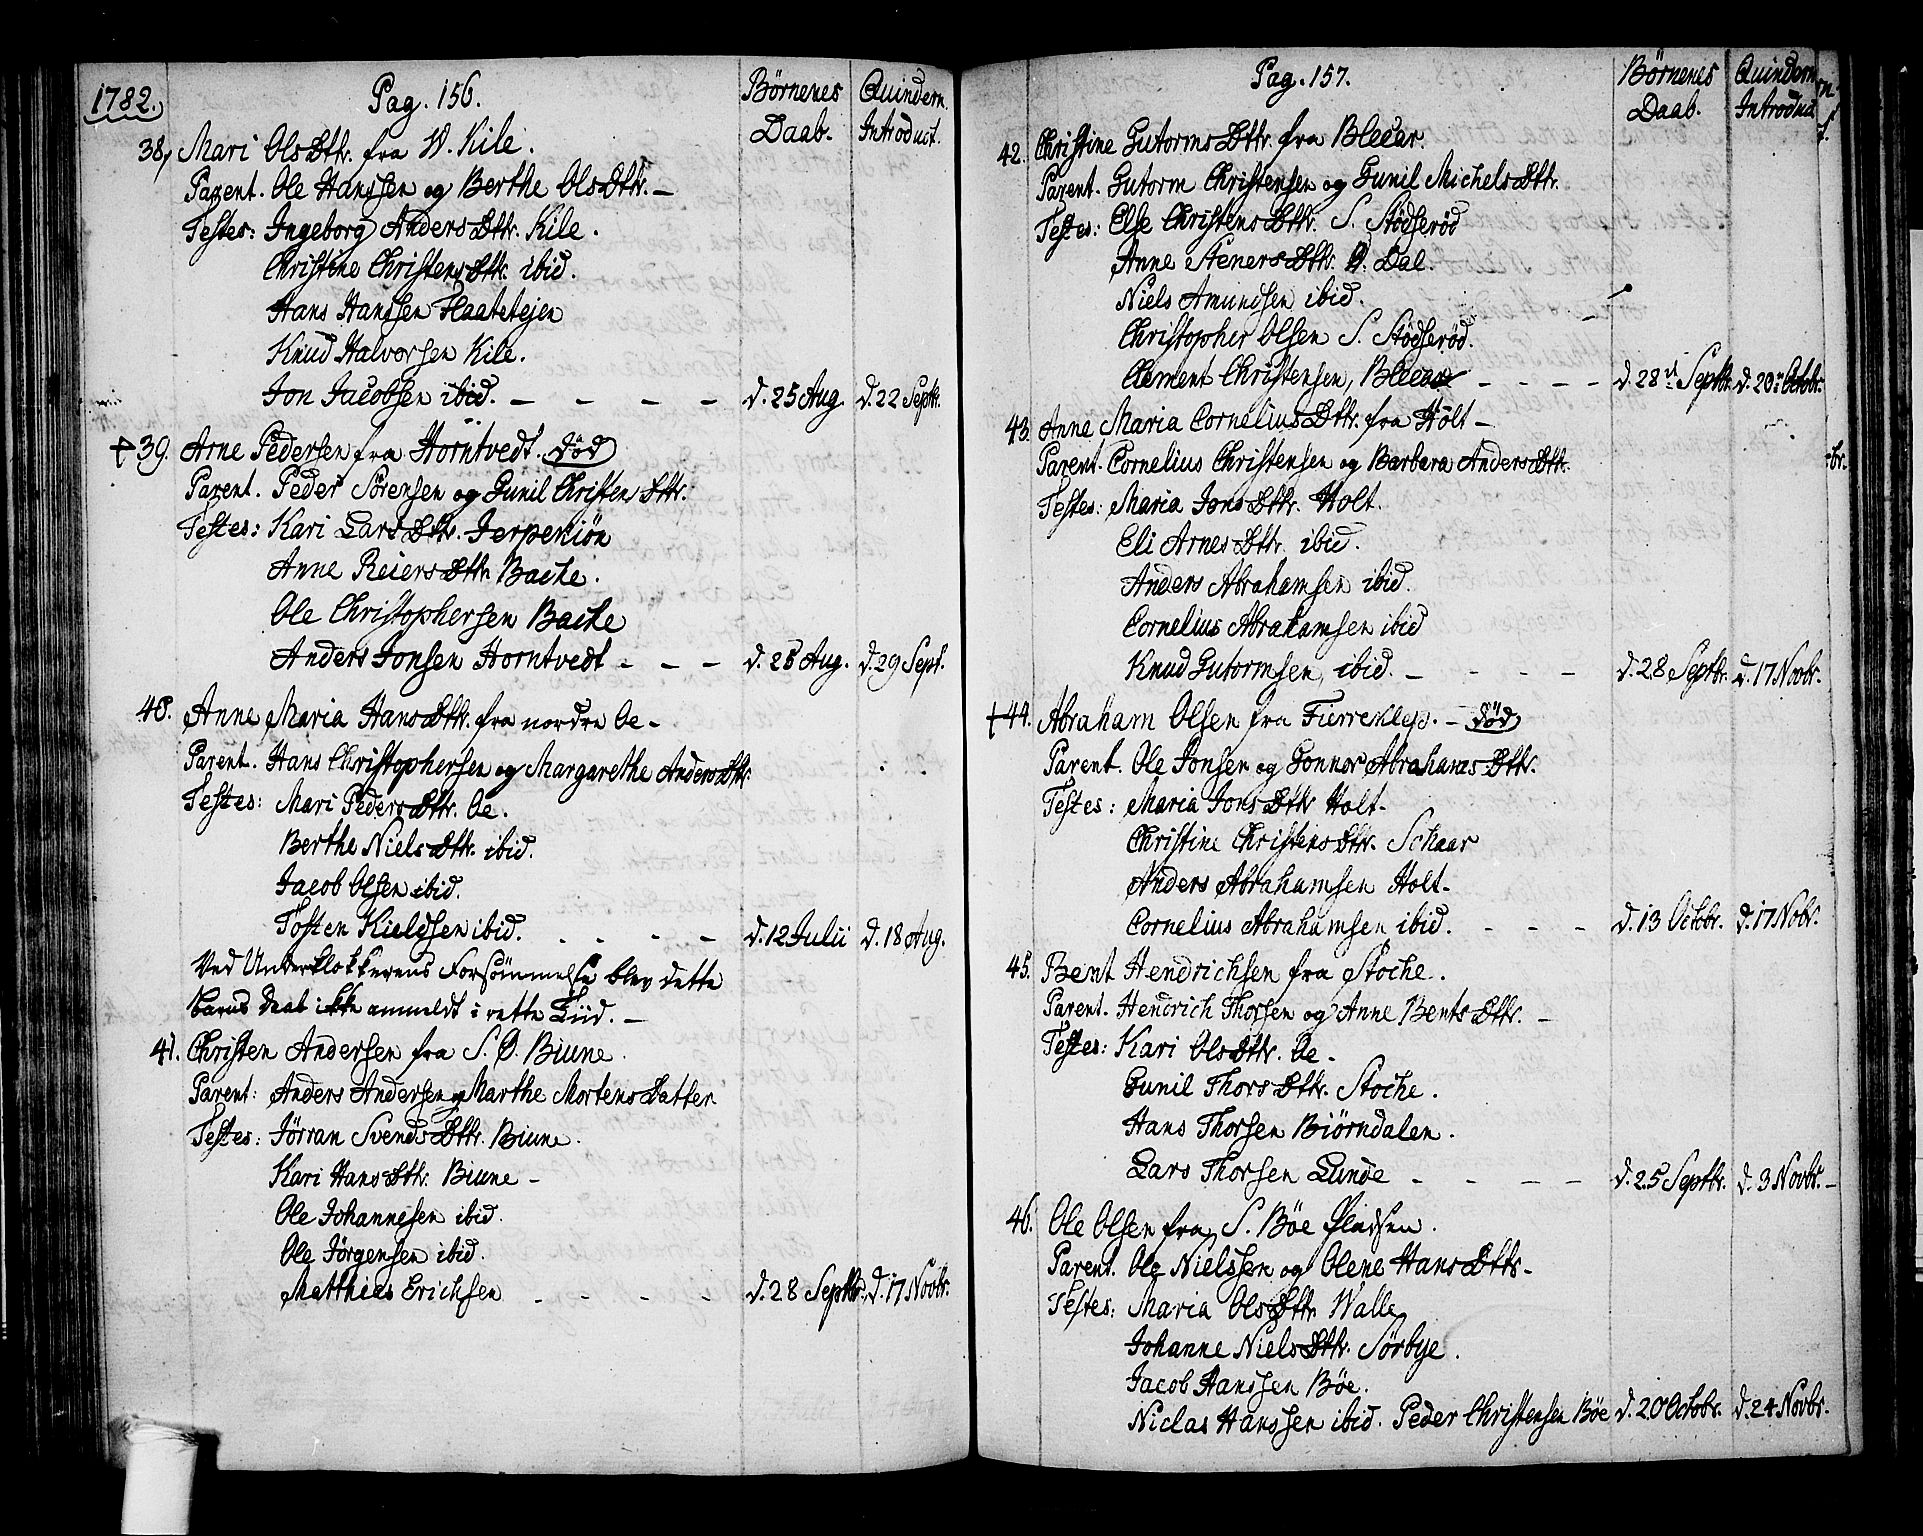 1782.
Pag. 156.
Börnenes Daab.
Quindern. Introduct.
38, Mari OlsDttr. fra W. Kile.
Parent. Ole Hanssen og Berthe OlsDttr. —
Testes: Ingeborg AndersDttr. Kile.
Christine ChristensDttr. ibid.
Hans Hanssen Flaatetejen
Knud Halvorsen Kile.
Jon Jacobsen ibid. — — — — d. 25 Aug. d. 22 Septb.
† 39. Arne Pedersen fra Horntvedt. død
Parent. Peder Sörensen og Gunil ChristenDttr.
Testes: Kari LarsDttr. Jerpekiön
Anne ReiersDttr Backe.
Ole Christophersen Backe
Anders Jonsen Horntvedt - - - d. 28 Aug. d. 29 Sept.
40. Anne Maria HansDttr. fra nordre Oe -
Parent. Hans Christophersen og Margarethe AndersDttr.
Testes: Mari PedersDttr. Oe.
Berthe NielsDttr. ibid.
Jacob Olsen ibid.
Tosten Kieldsen ibid. - - - - d. 12 Julii d. 18 Aug.
Ved Underklokkerens Forsömmelse blev dette
Barns Daab ikke anmeldt i rette Tiid. —
41. Christen Andersen fra S. Ø. Biune.
Parent: Anders Andersen og Marthe MortensDatter
Testes: Jörran SvendsDttr. Biune.
Kari HansDttr. Biune -
Ole Johannesen ibid.
Ole Jörgensen ibid.
Matthies Erichsen - - - - d. 28 Septbr. d. 17 Novbr.
Pag. 157.
Börnenes Daab.
Quindern Introduct
42. Christine GutormsDttr. fra Bleear.
Parent. Gutorm Christensen og Gunil MichelsDttr.
Testes: Else ChristensDttr. S. Stödseröd
Anne StenersDttr. Ø. Dal.
Niels Amundsen ibid.
Christopher Olsen S. Stödseröd.
Clement Christensen, Bleear - - - - d. 28 Septbr. d. 20 Octobr.
43. Anne Maria CorneliusDttr. fra Holt -
Parent. Cornelius Christensen og Barbara AndersDttr.
Testes: Maria JonsDttr. Holt.
Eli ArnesDttr. ibid.
Anders Abrahamsen ibid.
Cornelius Abrahamsen ibid
Knud Gutormsen, ibid. - - - - d. 28 Septbr. d. 17 Novbr.
† 44. Abraham Olsen fra Fierreklep. - død
Parent. Ole Jonsen og Gonnor AbrahamsDttr.
Testes: Maria JonsDttr Holt-
Christine ChristensDttr. Skaar
Anders Abrahamsen Holt-
Cornelius Abrahamsen ibid. - - - d. 13 Octobr. d. 17 Nobr.
45. Bent Hendrichsen fra Stoche.
Parent. Hendrich Thorsen og Anne BentsDttr. -
Testes: Kari OlsDttr. Oe -
Gunil ThorsDttr. Stoche.
Hans Thorsen Biörndalen.
Lars Thorsen Lunde - - - - d. 25 Septbr. d. 3 Novbr. -
46. Ole Olsen fra S. Böe
Parent. Ole Nielssen og Olene HansDttr -
Testes: Maria OlsDttr Walle
Johanne NielsDttr. Sörbye.
Jacob Hanssen Böe.
Niclas Hanssen ibid. Peder Christensen Böe d. 20 Octobr. d. 24 Novbr.